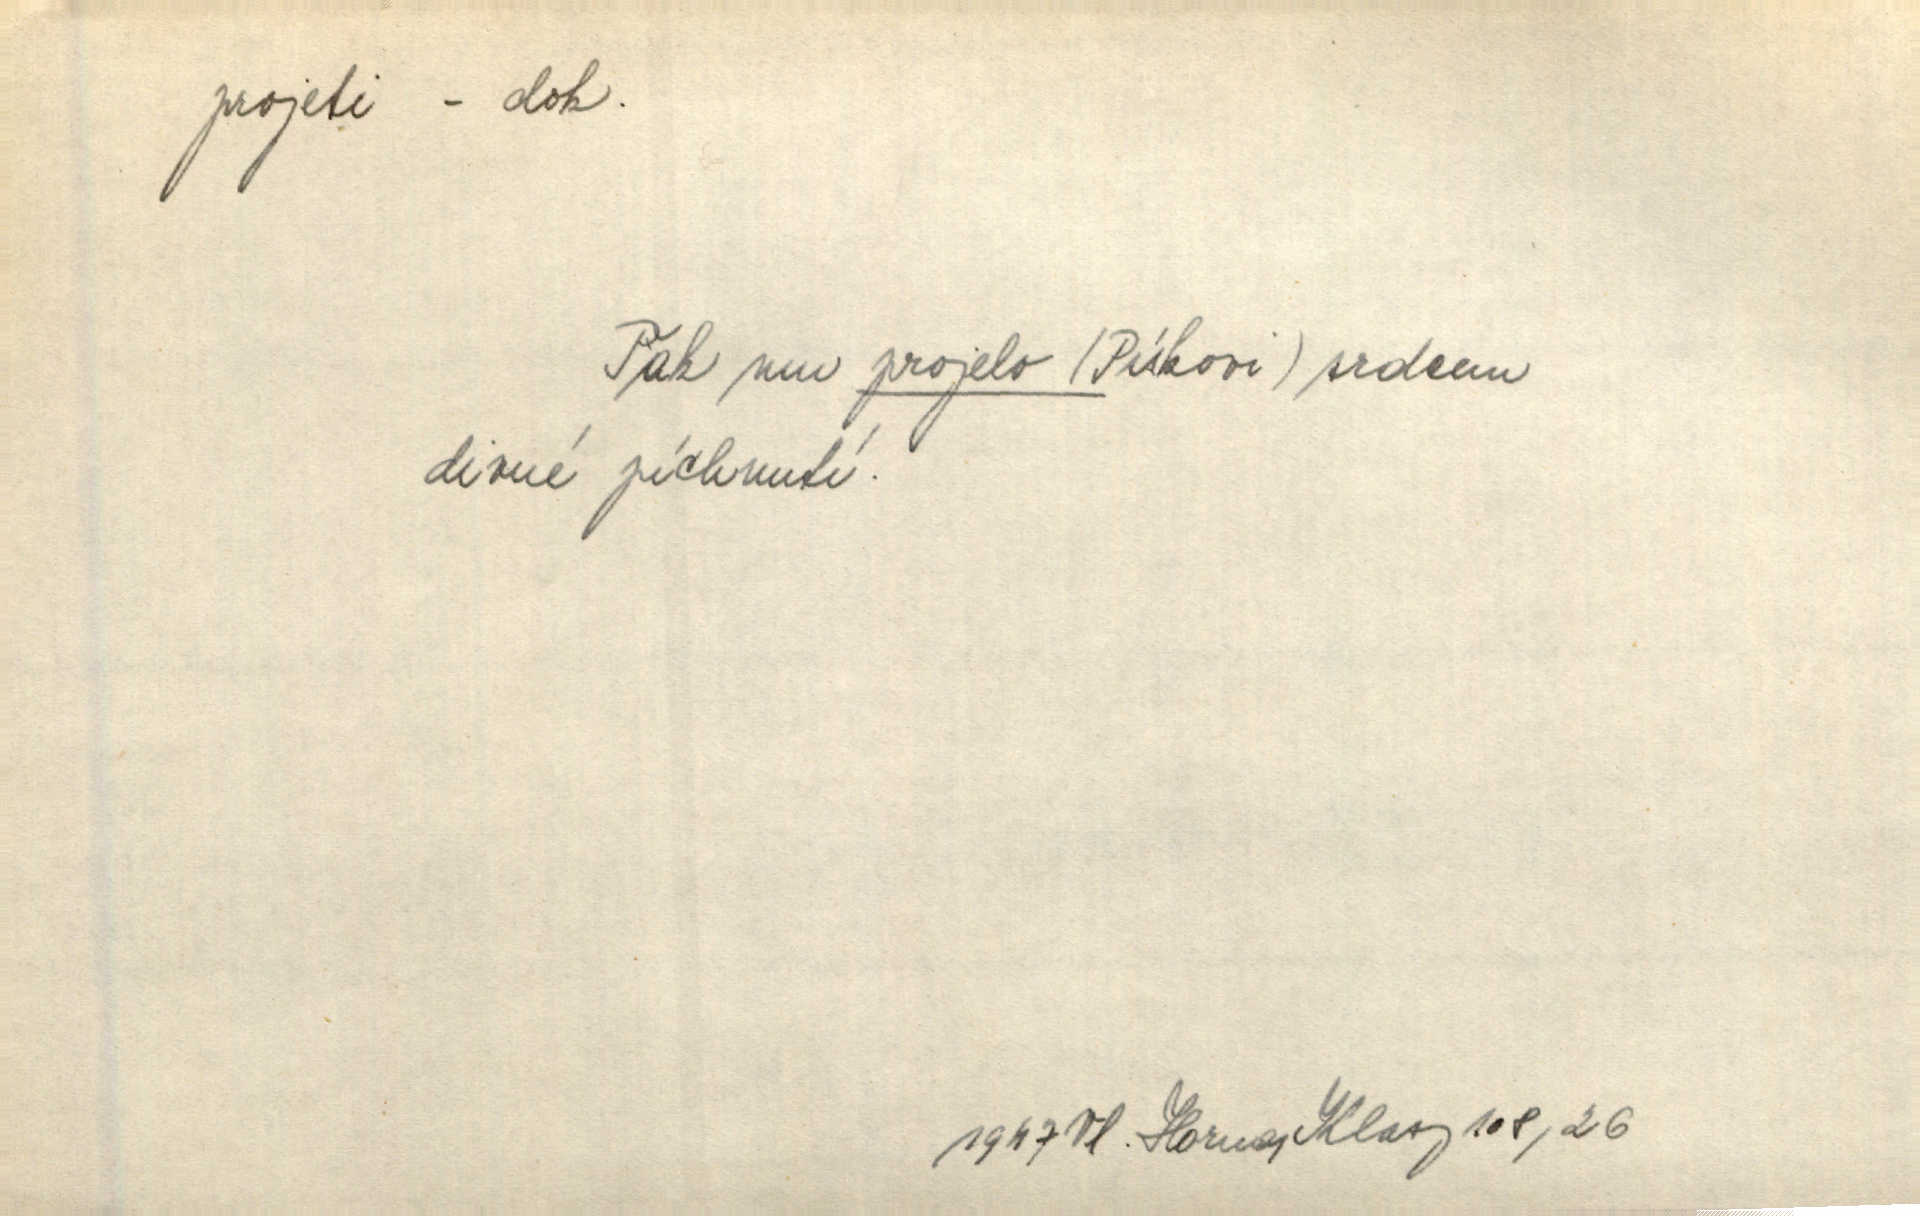 projeti - dok.
Pak mu projelo (Píškovi) srdcem
divné píchnutí.
1947 Vl. Horna, Klasy 108, 26